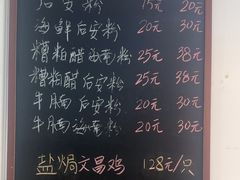 后安粉 15元 20元
海鲜后安粉 20元 30元
糟粕醋海南粉 25元 38元
糟粕醋后安粉 25元 38元
牛腩后安粉 20元 30元
牛腩海南粉 20元 30元
盐焗文昌鸡 128元/只